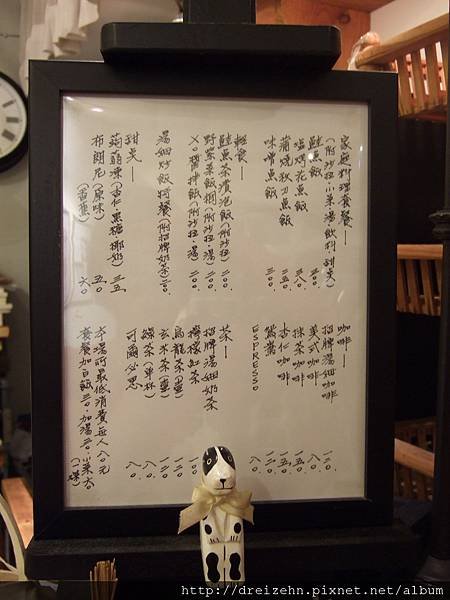 家庭料理套餐—
(附沙拉.小菜.湯.飲料.甜點)
鮭魚飯 二八〇.
鹽烤花魚飯 三〇〇.
蒲燒秋刀魚飯 二五〇.
味噌魚飯 三〇〇.
輕食—
鮭魚茶漬泡飯(附沙拉) 二〇〇.
野菜菜飯糰(附沙拉.湯) 二〇〇.
XO醬拌飯(附沙拉.湯) 二〇〇.
湯細炒飯特餐(附招牌奶茶) 二一〇.
甜美—
蒟蒻凍(杏仁.黑糖.椰奶) 三五
布朗尼(原味) 五〇.
(香蕉) 六〇.
咖啡—
招牌湯細咖啡 一二〇.
美式咖啡 一〇〇.
抹茶咖啡 一五〇.
杏仁咖啡 一五〇.
鴛鴦 一二〇.
ESPRESSO 八〇.
茶—
招牌湯細奶茶
檸檬紅茶
烏龍茶(壺) 一二〇.
玄米茶(壺) 一二〇.
綠茶(單杯) 八〇.
可爾必思 八〇.
本場所最低消費每人八〇元
套餐加白飯二〇.加湯二〇.小菜六〇(一碟)
http://dreizehn.pixnet.net/album